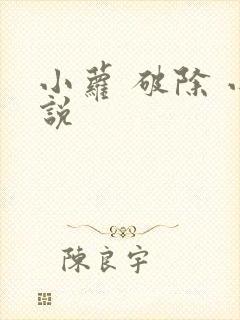 小蘿 破除 小
說
陳良宇